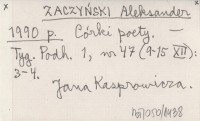 ZACZYŃSKI Aleksander
1990 r. Córki poety. —
Tyg. Podh. 1, nr 47 (9-15 XII):
3-4.
Jana Kasprowicza.